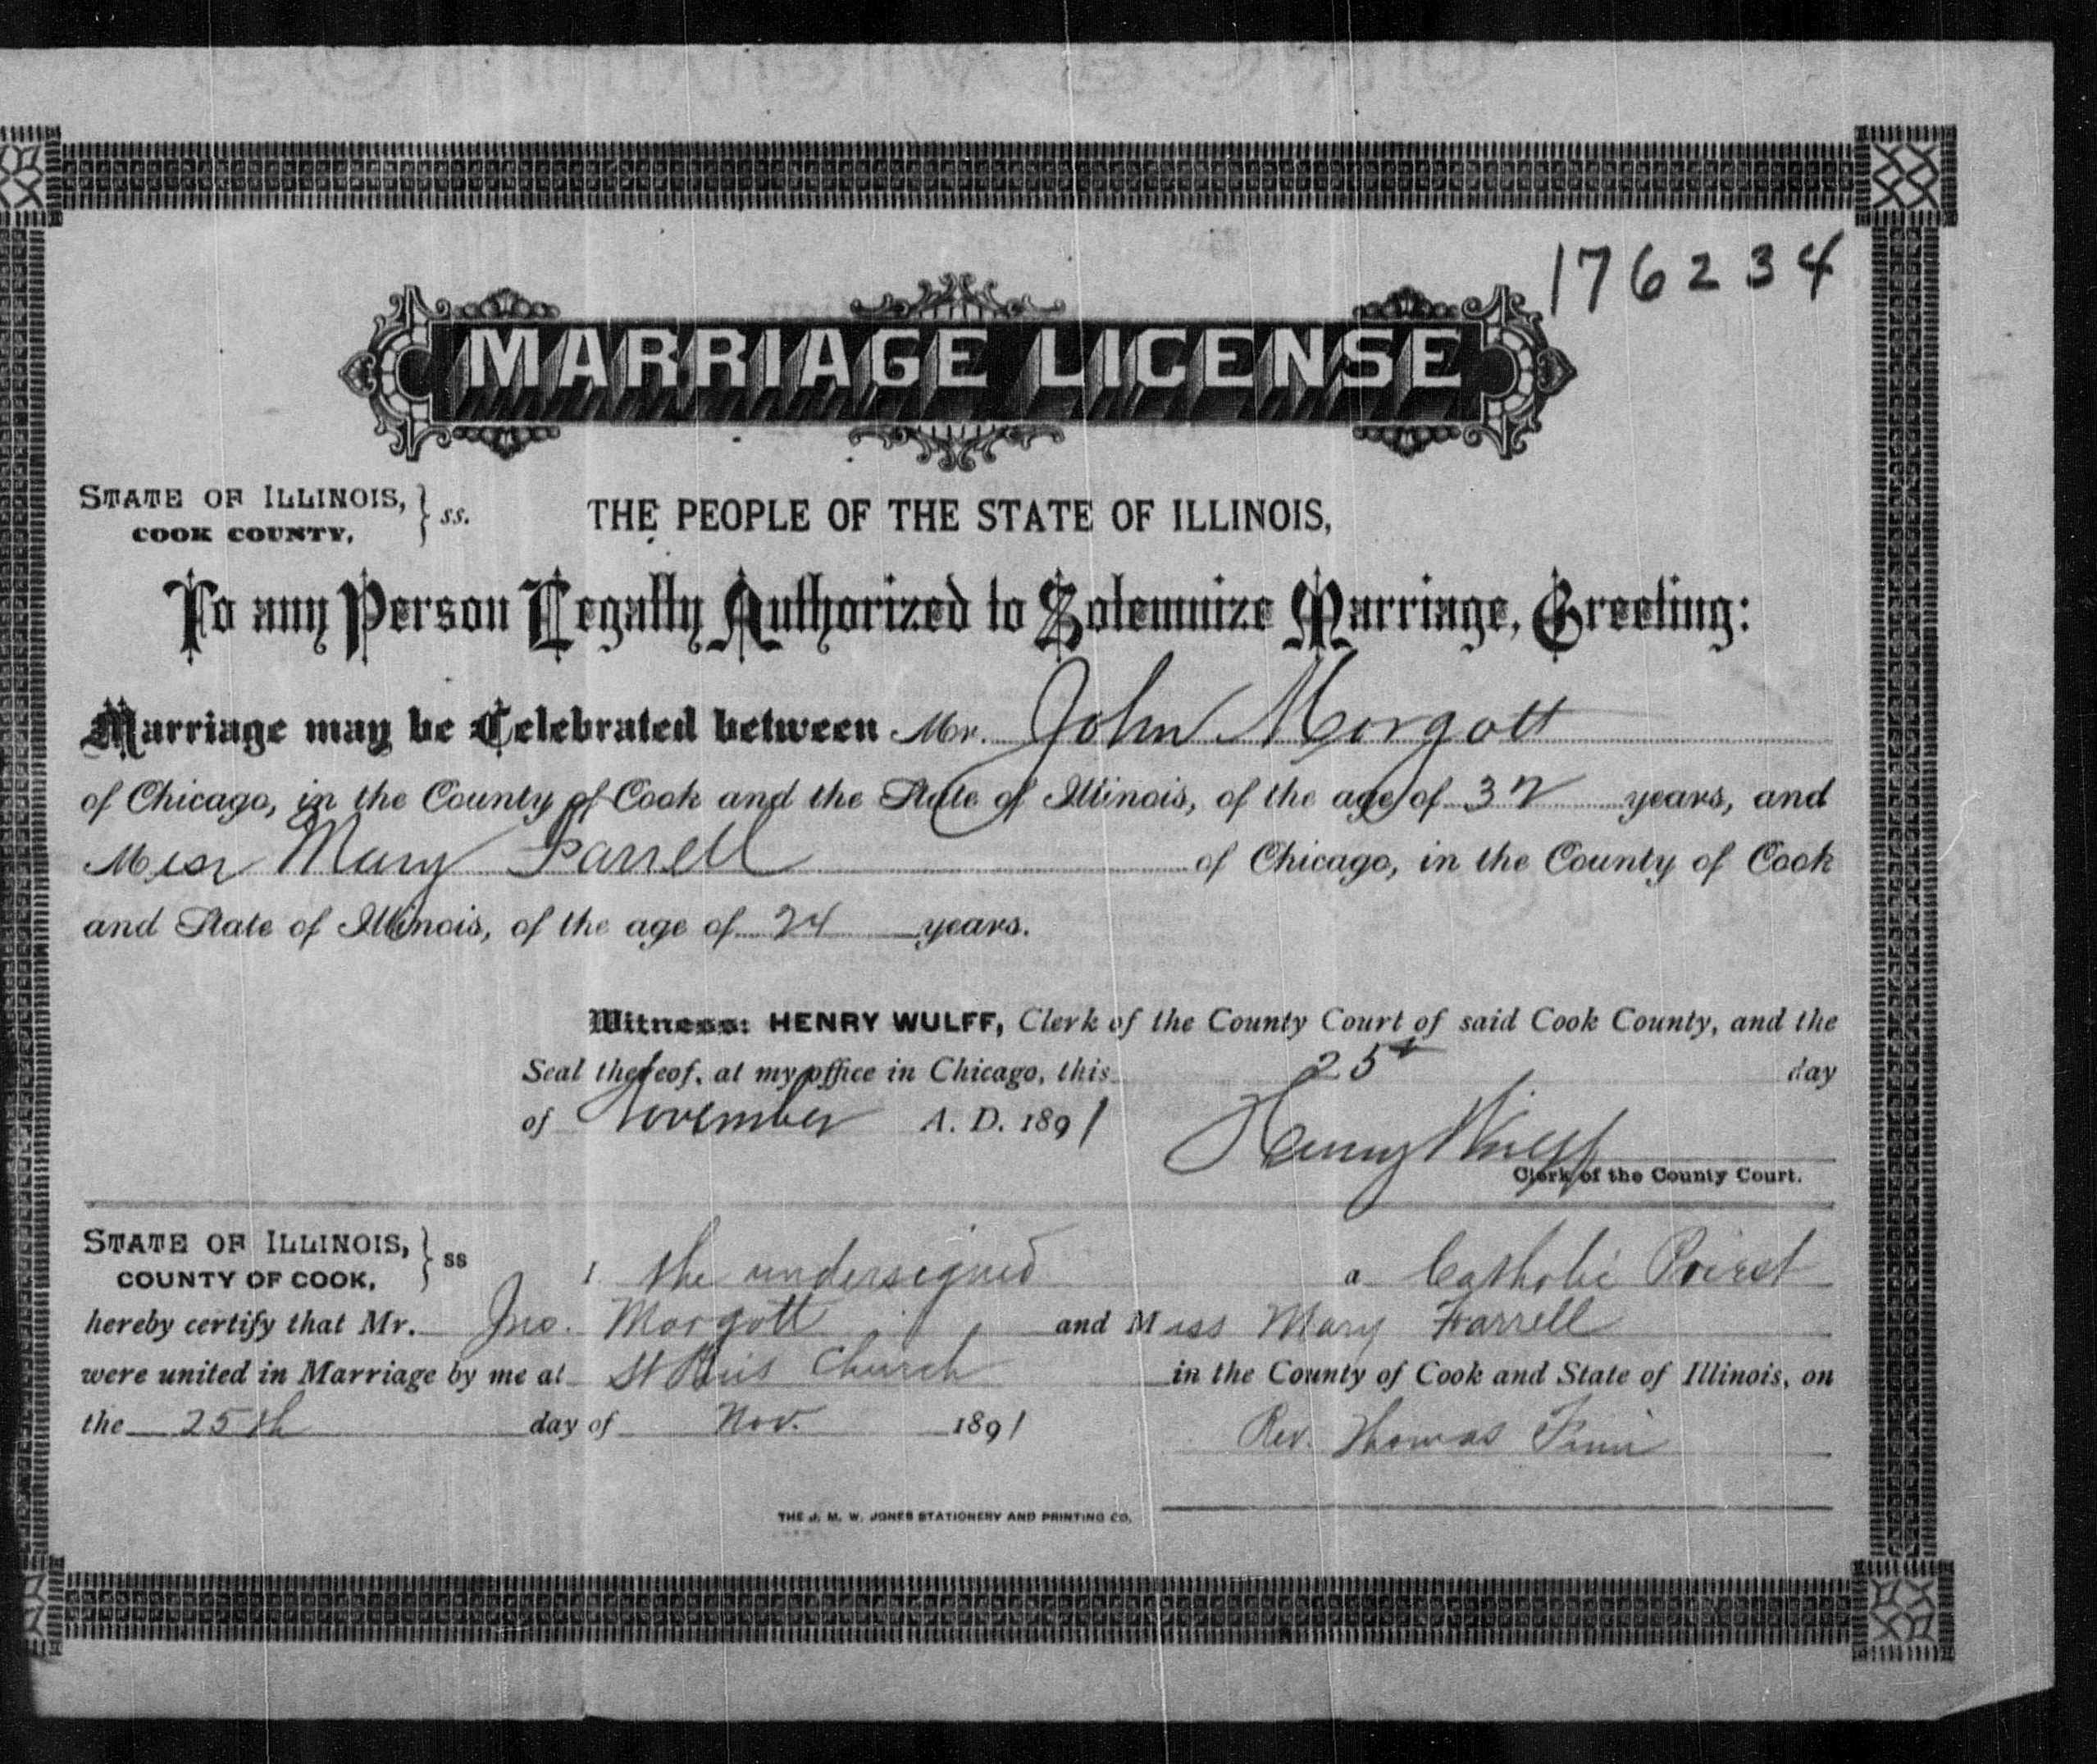 176234
MARRIAGE LICENSE
STATE OF ILLINOIS,
COOK COUNTY, } ss.
THE PEOPLE OF THE STATE OF ILLINOIS,
To any Person Legally Authorized to Solemnize Marriage, Greeting:
Marriage may be Celebrated between Mr. John Morgott
of Chicago, in the County of Cook and the State of Illinois, of the age of 32 years, and
Miss Mary Farrell of Chicago, in the County of Cook
and State of Illinois, of the age of 24 years.
Witness: HENRY WULFF, Clerk of the County Court of said Cook County, and the
Seal thereof, at my office in Chicago, this 25 day
of November A. D. 1891
Henry Wulff
Clerk of the County Court.
STATE OF ILLINOIS,
COUNTY OF COOK, } ss
I the undersigned a Catholic Priest
hereby certify that Mr. Jno. Morgott and Miss Mary Farrell
were united in Marriage by me at St Pius Church in the County of Cook and State of Illinois, on
the 25th day of Nov. 1891
Rev. Thomas Finn
THE J. M. W. JONES STATIONERY AND PRINTING CO.